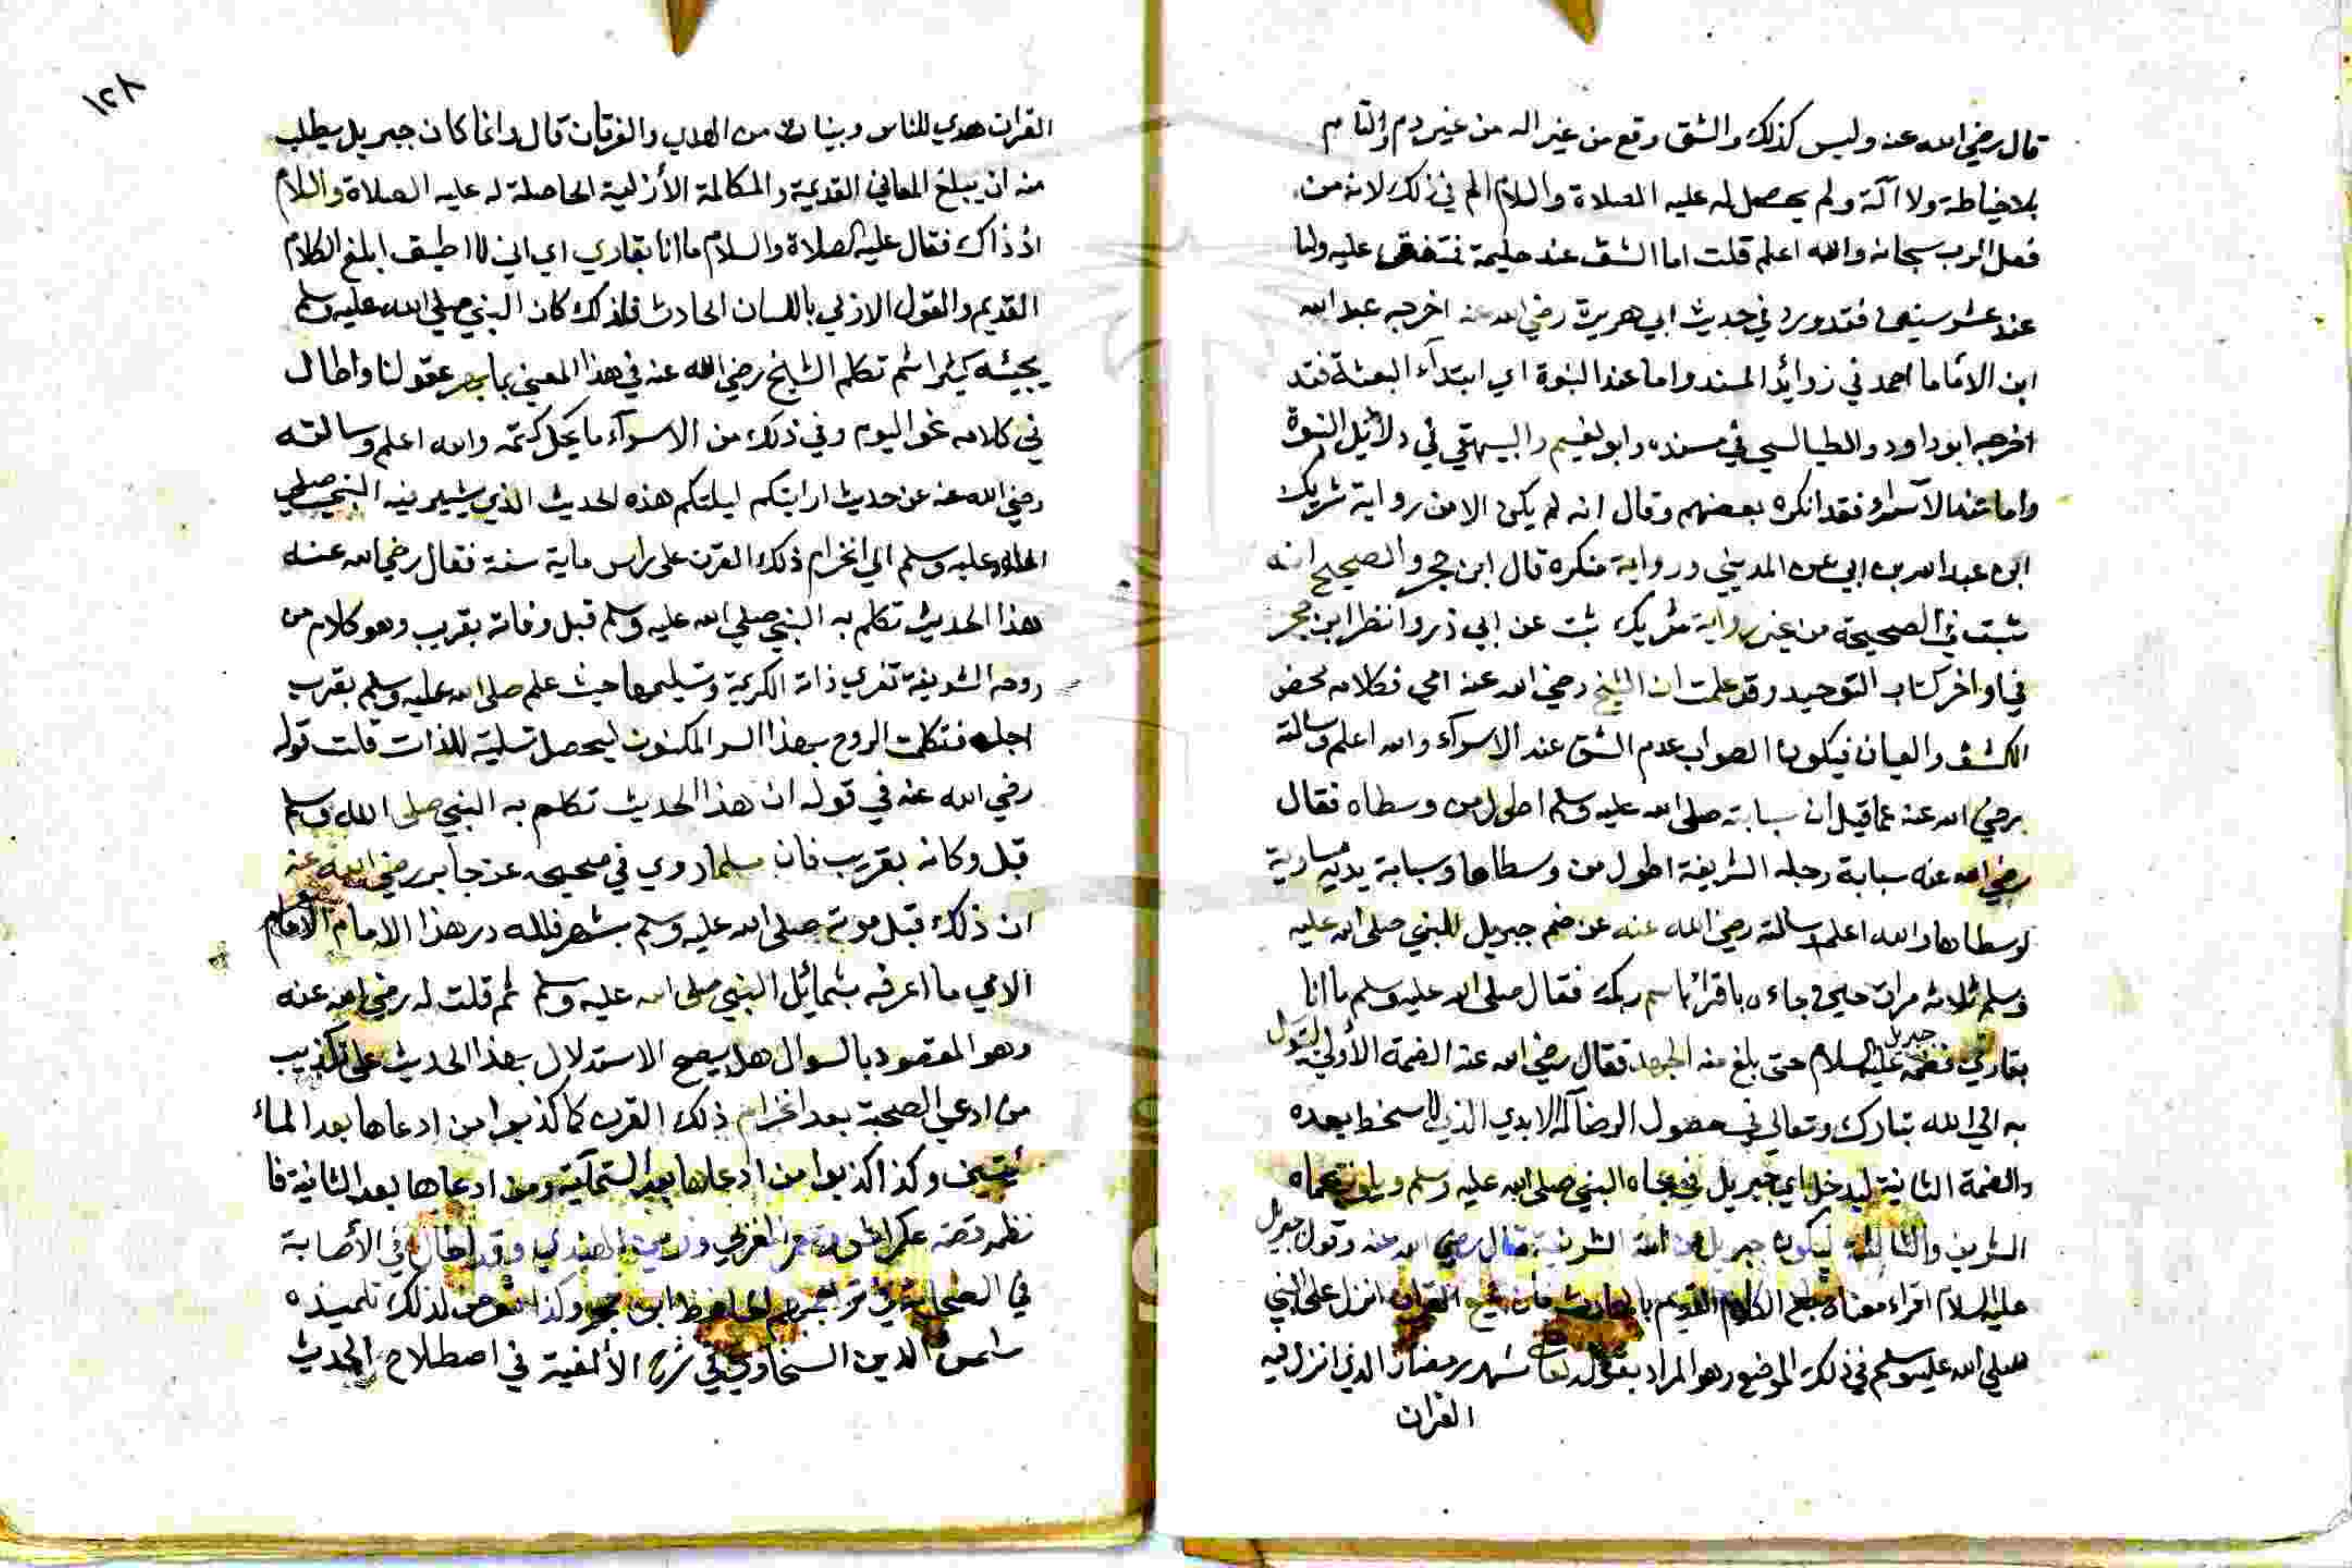 قال رضي الله عنه وليس كذلك والشق وقع من غير اله من غير دم والتام
بلا خياطة ولا آلة ولم يحصل له عليه الصلاة والسلام الم في ذلك لانه من
فعل الرب سبحانه والله اعلم قلت اما الشق عند حليمة فمتفق عليه واما
عند عشر سنين فقد ورد في حديث ابي هريرة رضي الله عنه اخرجه عبد الله
ابن الامام احمد في زوائد المسند واما عند النبوة اي ابتداء البعثة فقد
اخرجه ابو داود والطيالسي في مسنده وابو نعيم والبيهقي في دلائل النبوة
واما عند الاسراء فقد انكره بعضهم وقال انه لم يكن الا من رواية شريك
ابن عبد الله بن ابي المديني ورواية منكرة قال ابن حجر والصحيح انه
ثبت في الصحيحة من غير رواية شريك ثبت عن ابي ذر وانظر ابن حجر
في اواخر كتاب التوحيد وقد علمت ان الشيخ رضي الله عنه امي فكلامه محض
الكشف والعيان فيكون الصواب عدم الشق عند الاسرآء والله اعلم وسالته
رضي الله عنه عما قيل ان سبابته صلى الله عليه وسلم اطول من وسطاه فقال
رضي الله عنه سبابة رجله الشريفة اطول من وسطاها وسبابة يديه مساوية
لوسطاها والله اعلم وسالته رضي الله عنه عن ضم جبريل للنبي صلى الله عليه
وسلم ثلاث مرات حين جاءه باقرا باسم ربك فقال صلى الله عليه وسلم ما انا
بقاري فضمه جبريل عليه السلام حتى بلغ منه الجهد فقال رضي الله عنه الضمة الأولى
به الى الله تبارك وتعالى في حصول الرضا له الابدي الذي لا سخط بعده
والضمة الثانية ليدخل اي جبريل في جاه النبي صلى الله عليه وسلم ويلوذ بحماه
الشريف والثالثة ليكون جبريل من امته الشريفة قال رضي الله عنه وقول جبريل
عليه السلام اقراء معناه بلغ الكلام القديم بالحادث فان القران انزل على النبي
صلى الله عليه وسلم في ذلك الموضع وهو المراد بقوله تعالى شهر رمضان الذي انزل فيه
القران
١٢٨
القران هدي للناس وبينات من الهدي والفرقان قال وانما كان جبريل يطلب
منه ان يبلغ المعاني القديمة والمكالمة الأزلية الحاصلة له عليه الصلاة والسلام
اذ ذاك فقال عليه الصلاة والسلام ما انا بقاري اي اني لا اطيق ابلغ الكلام
القديم والقول الازلي باللسان الحادث فلذلك كان النبي صلى الله عليه وسلم
يجيئه كثيرا ثم تكلم الشيخ رضي الله عنه في هذا المعنى بما يبهر عقولنا واطال
في كلامه نحو اليوم وفي ذلك من الاسرآء ما يحل كتمه والله اعلم وسالته
رضي الله عنه عن حديث ارايتكم ليلتكم هذه الحديث الذي يشير فيه النبي صلى
الله عليه وسلم الي انخرام ذلك القرن على راس ماية سنة فقال رضي الله عنه
هذا الحديث تكلم به النبي صلى الله عليه وسلم قبل وفاته بقريب وهو كلام من
روحه الشريفة تعزي ذاته الكريمة وتسليها حيث علم صلى الله عليه وسلم بقرب
اجله فتكلمت الروح بهذا السر المكنون ليحصل تسلية للذات قلت قوله
رضي الله عنه في قوله ان هذا الحديث تكلم به النبي صلى الله وسلم
قبل وكانه بقريب فان مسلما روي في صحيحه عن جابر رضي الله عنه
ان ذلك قبل موته صلى الله عليه وسلم بشهر فلله در هذا الامام
الامي ما اعرفه بشمائل النبي صلى الله عليه وسلم ثم قلت له رضي الله عنه
وهو المقصود بالسوال هل يصح الاستدلال بهذا الحديث على تكذيب
من ادعي الصحبة بعد انخرام ذلك القرن كما كذبوا من ادعاها بعد الماء
ئتين وكذا كذبوا من ادعاها بعد الستمآئة ومن ادعاها بعد الثانية فا
نظر قصة المغربي الهندي وقد اطال في الأصابة
في الصحابة في الحافظ ابن حجر وكذا تعرض لذلك تلميذه
شمس الدين السخاوي في شرح الألفية في اصطلاح الحديث